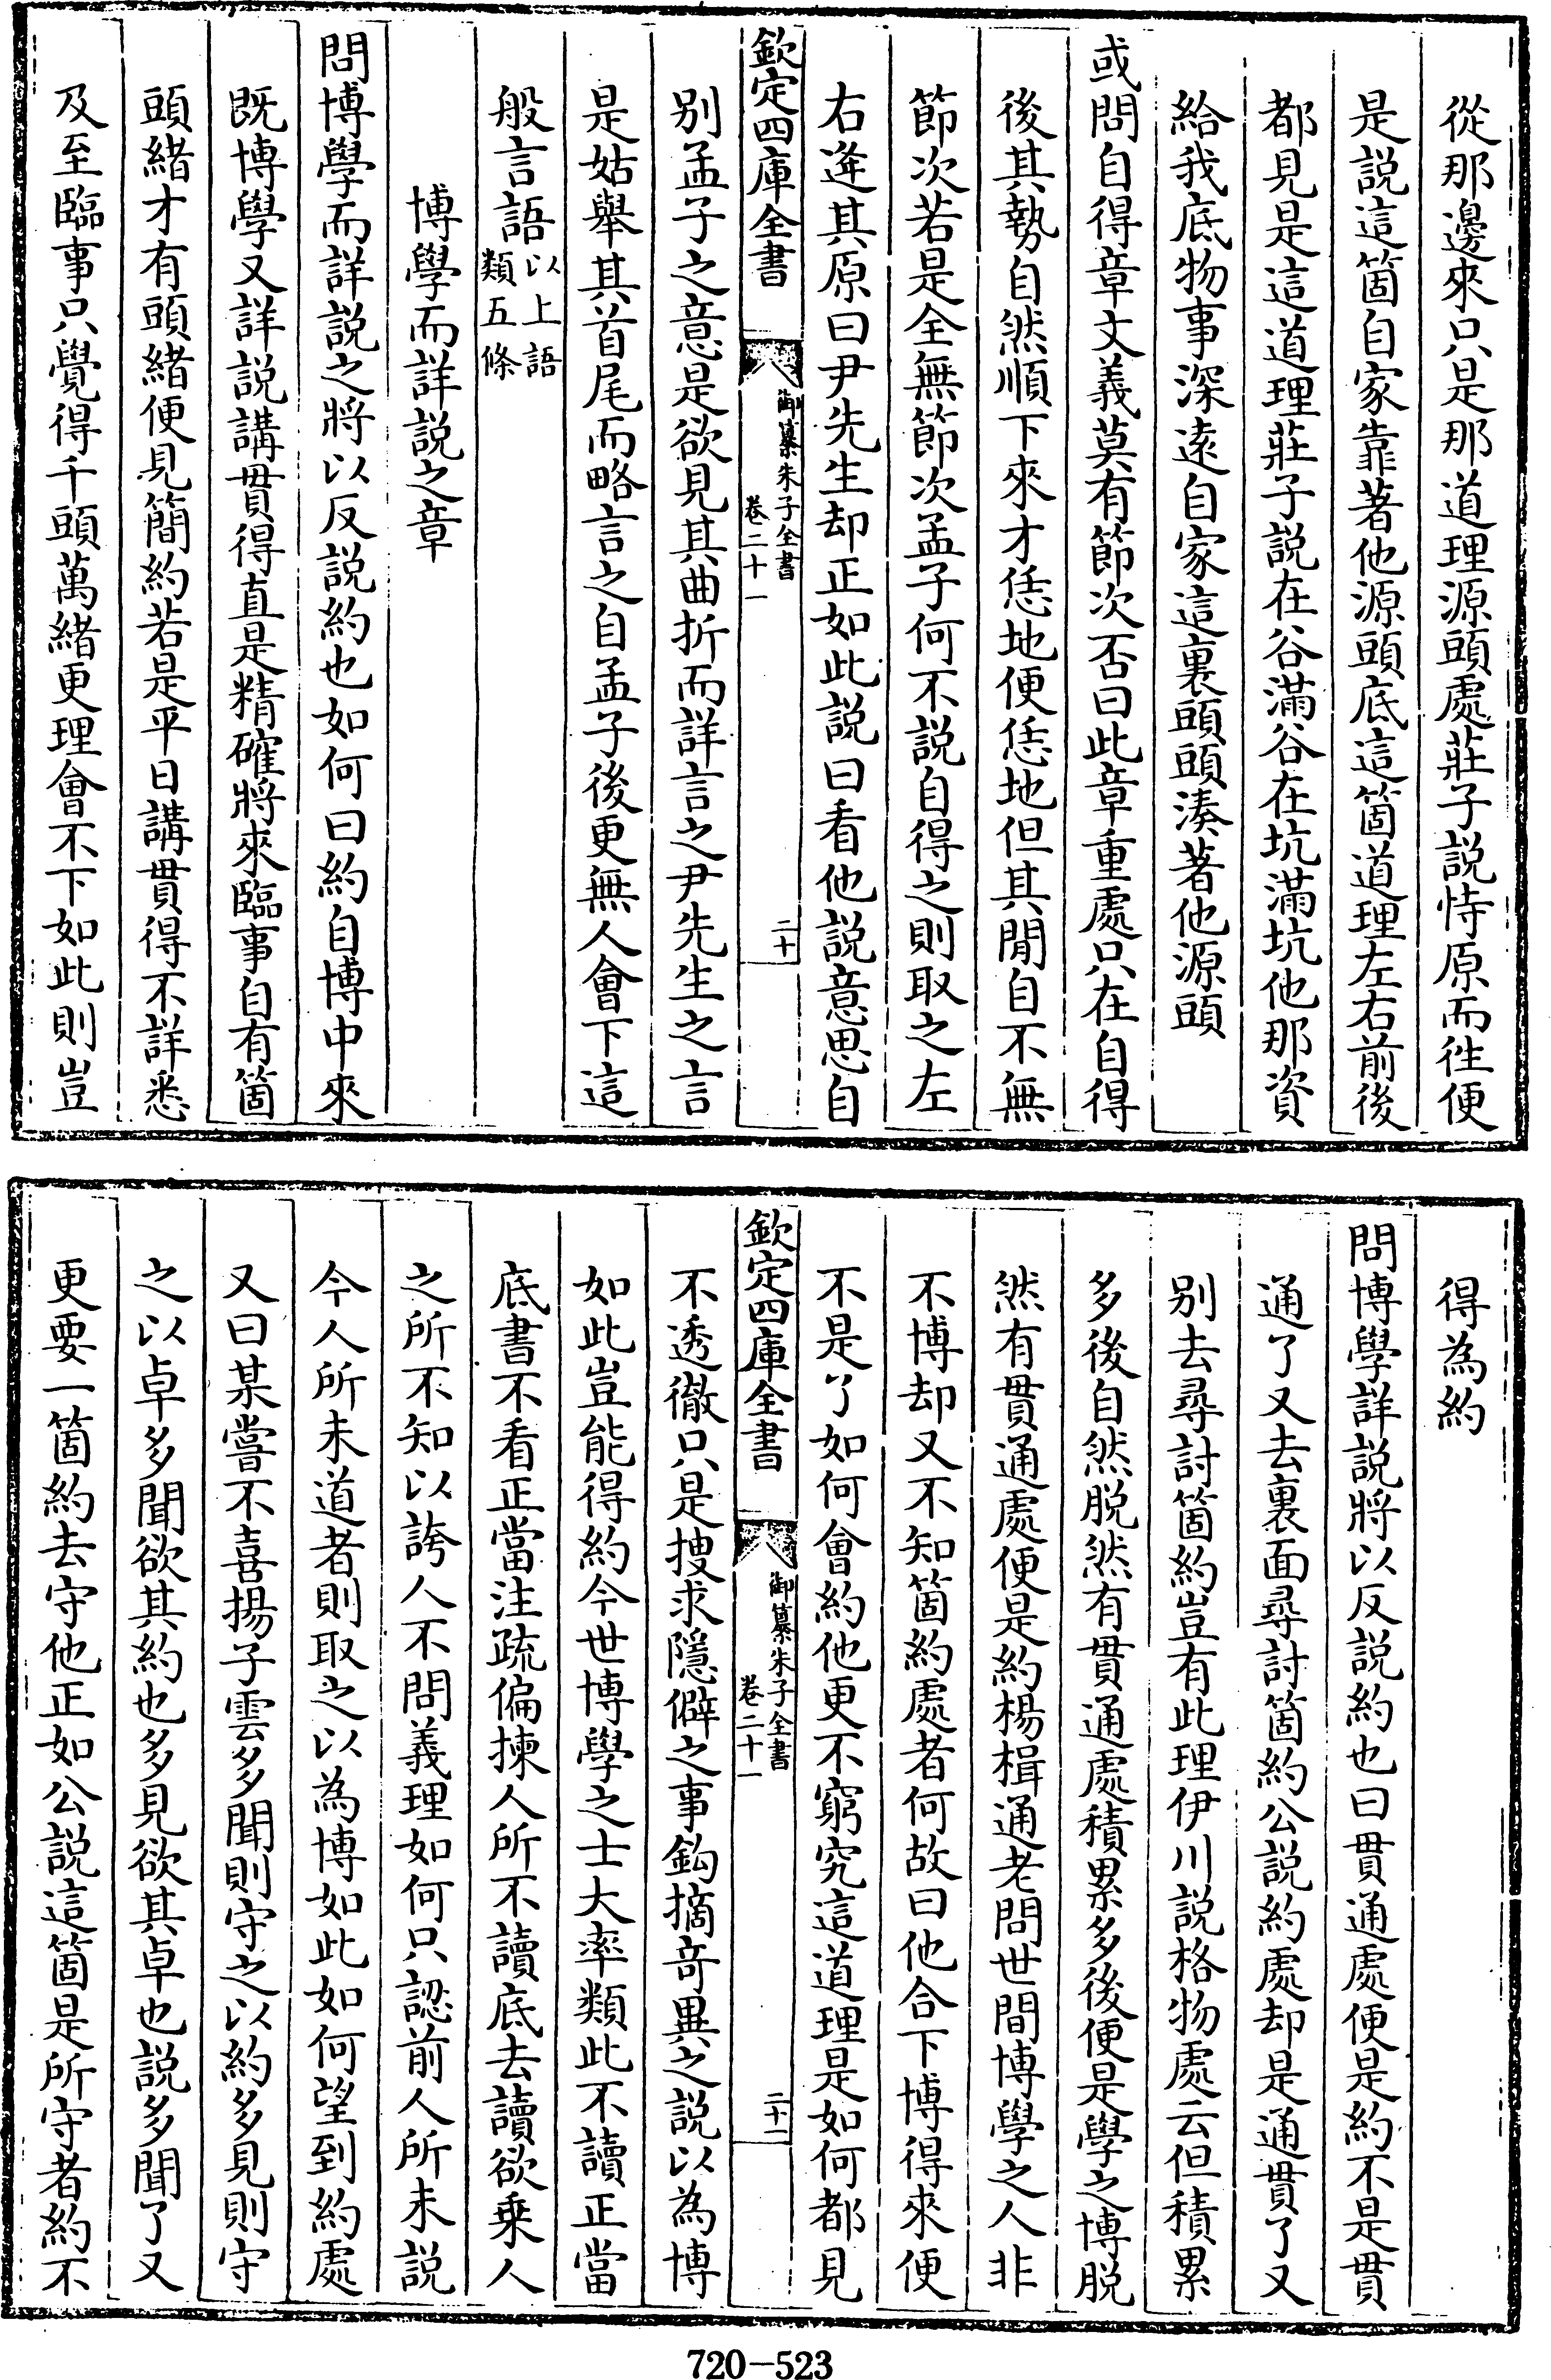 從那邊來只是那道理源頭處莊子説恃原而徃便
是説這箇自家靠著他源頭底這箇道理左右前後
都見是這道理莊子説在谷滿谷在坑滿坑他那資
給我底物事深逺自家這裏頭頭湊著他源頭
或問自得章文義莫有節次否曰此章重處只在自得
後其勢自然順下來才恁地便恁地但其間自不無
節次若是全無節次孟子何不説自得之則取之左
右逄其原曰尹先生却正如此説曰看他説意思自
欽定四庫全書
御纂朱子全書
卷二十一
二十
别孟子之意是欲見其曲折而詳言之尹先生之言
是姑舉其首尾而略言之自孟子後更無人會下這
般言語以上語
類五條
博學而詳説之章
問博學而詳説之將以反説約也如何曰約自博中來
既博學又詳説講貫得直是精確將來臨事自有箇
頭緒才有頭緒便見簡約若是平日講貫得不詳悉
及至臨事只覺得千頭萬緒更理會不下如此則豈
得為約
問博學詳説將以反説約也曰貫通處便是約不是貫
通了又去裏面尋討箇約公説約處却是通貫了又
别去尋討箇約豈有此理伊川説格物處云但積累
多後自然脱然有貫通處積累多後便是學之博脱
然有貫通處便是約楊楫通老問世間博學之人非
不博却又不知箇約處者何故曰他合下博得來便
不是了如何會約他更不窮究這道理是如何都見
欽定四庫全書
御纂朱子全書
卷二十一
二十一
不透徹只是搜求隱僻之事鈎摘竒異之説以為博
如此豈能得約今世博學之士大率類此不讀正當
底書不看正當注疏偏揀人所不讀底去讀欲乗人
之所不知以誇人不問義理如何只認前人所未説
今人所未道者則取之以為博如此如何望到約處
又曰某嘗不喜揚子雲多聞則守之以約多見則守
之以卓多聞欲其約也多見欲其卓也説多聞了又
更要一箇約去守他正如公説這箇是所守者約不
720-523